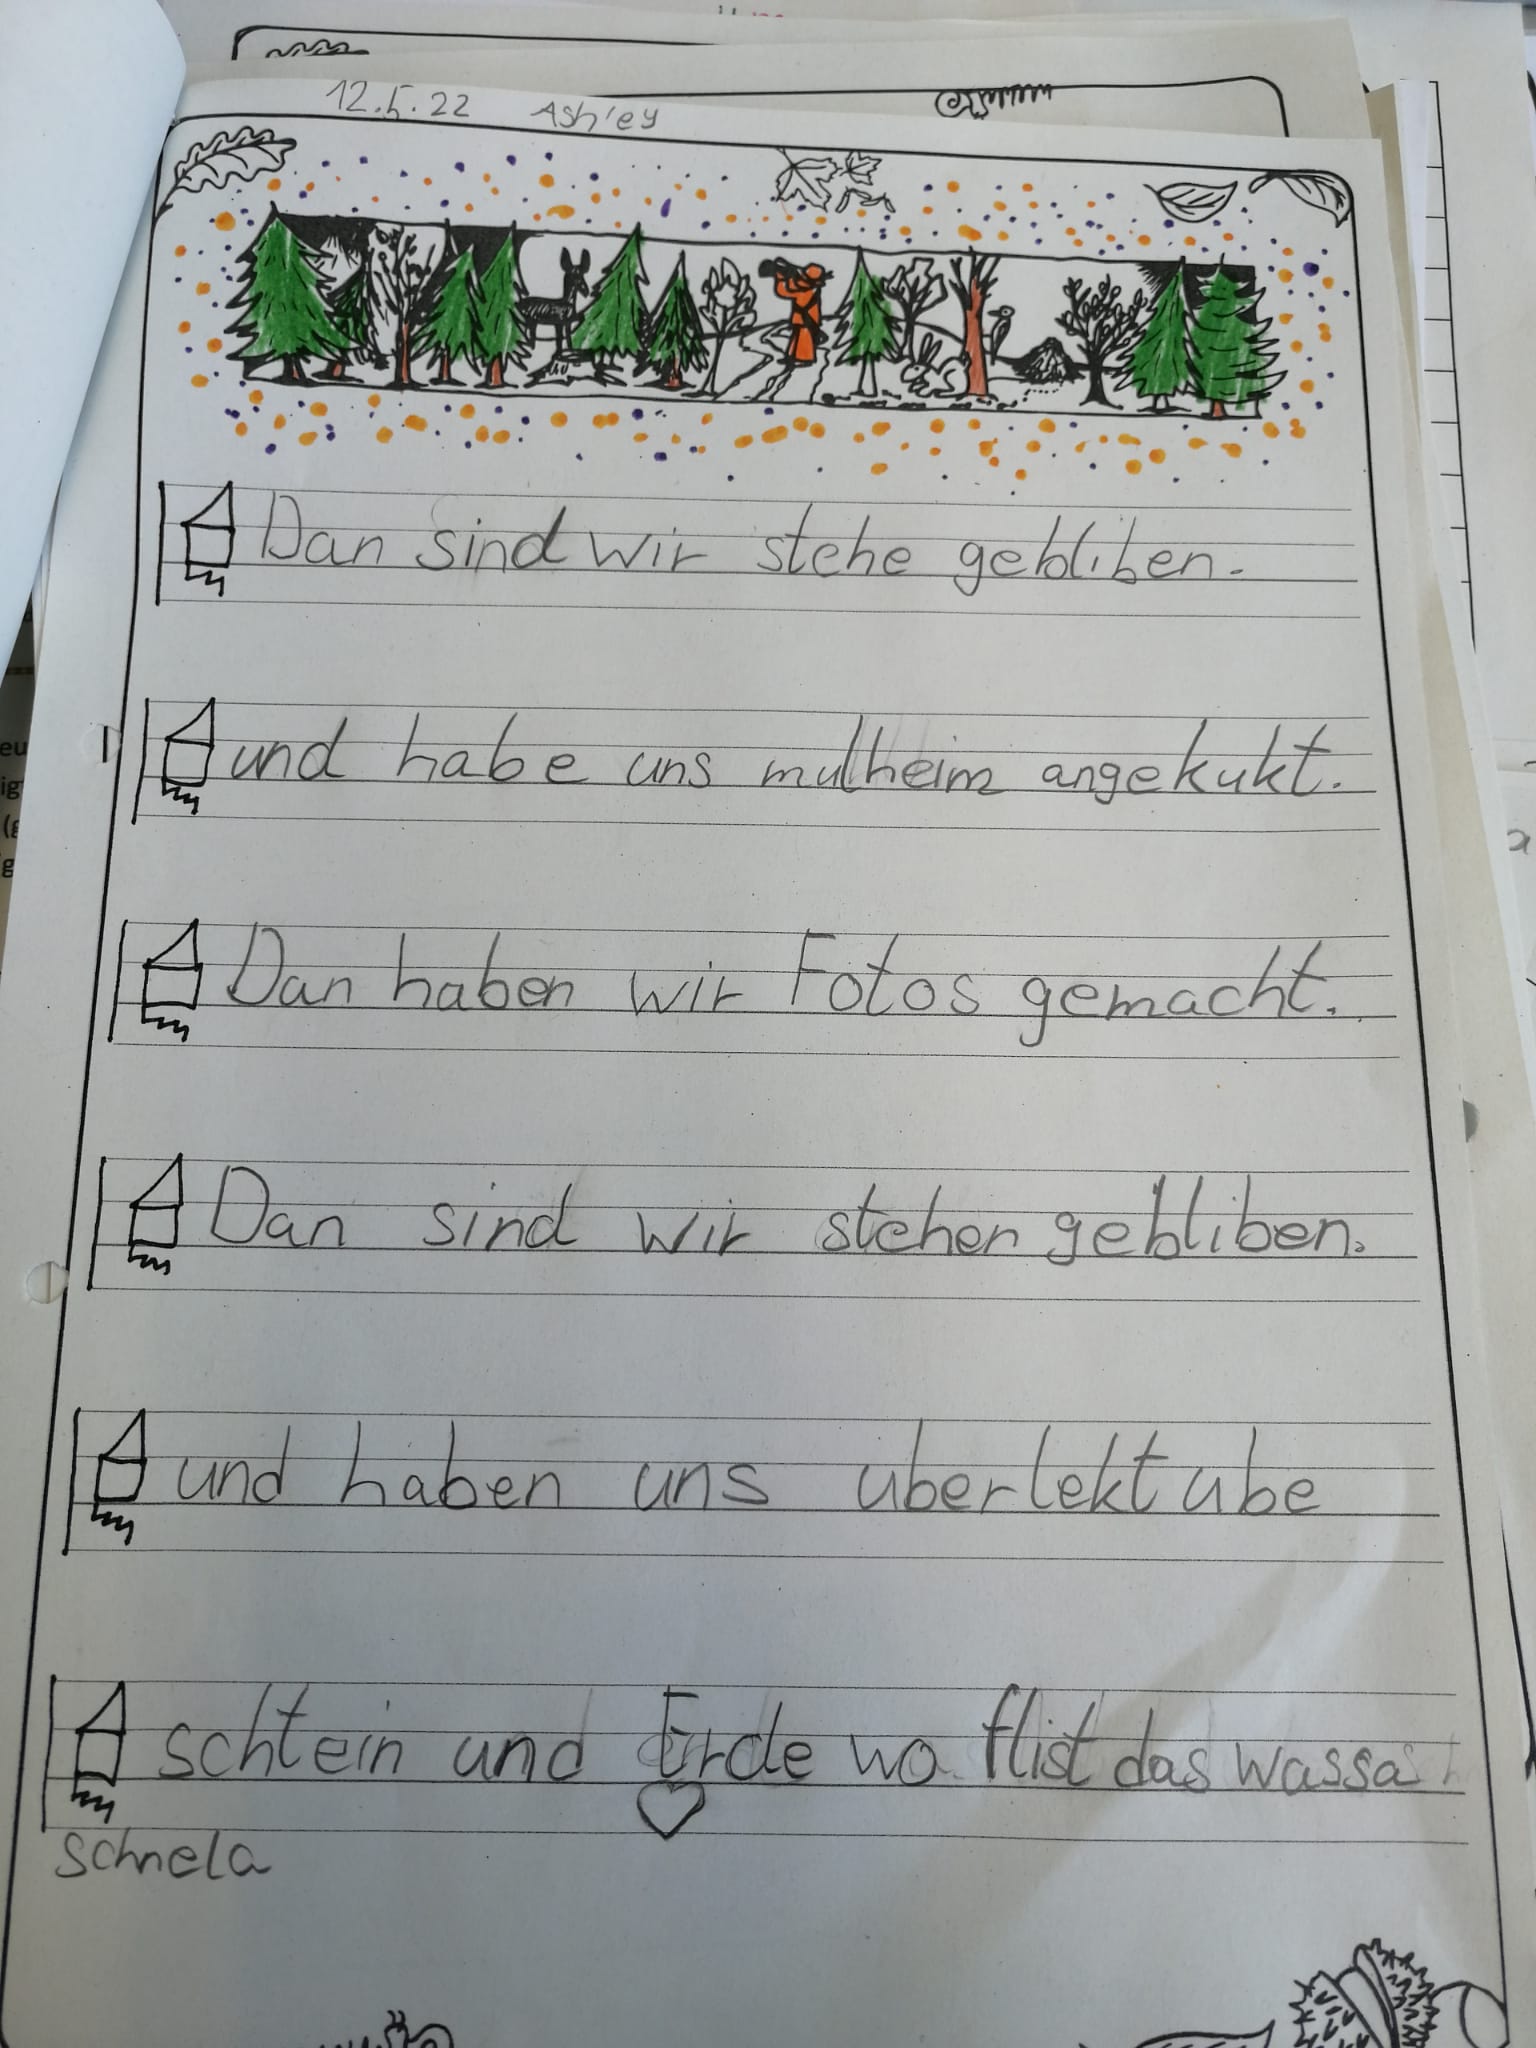 12.5.22 Ashley
Dan sind wir stehe gebliben.
und habe uns mulheim angekukt.
Dan haben wir Fotos gemacht.
Dan sind wir stehen gebliben.
und haben uns uberlekt ube
schtein und Erde wo flist das wassa
schnela